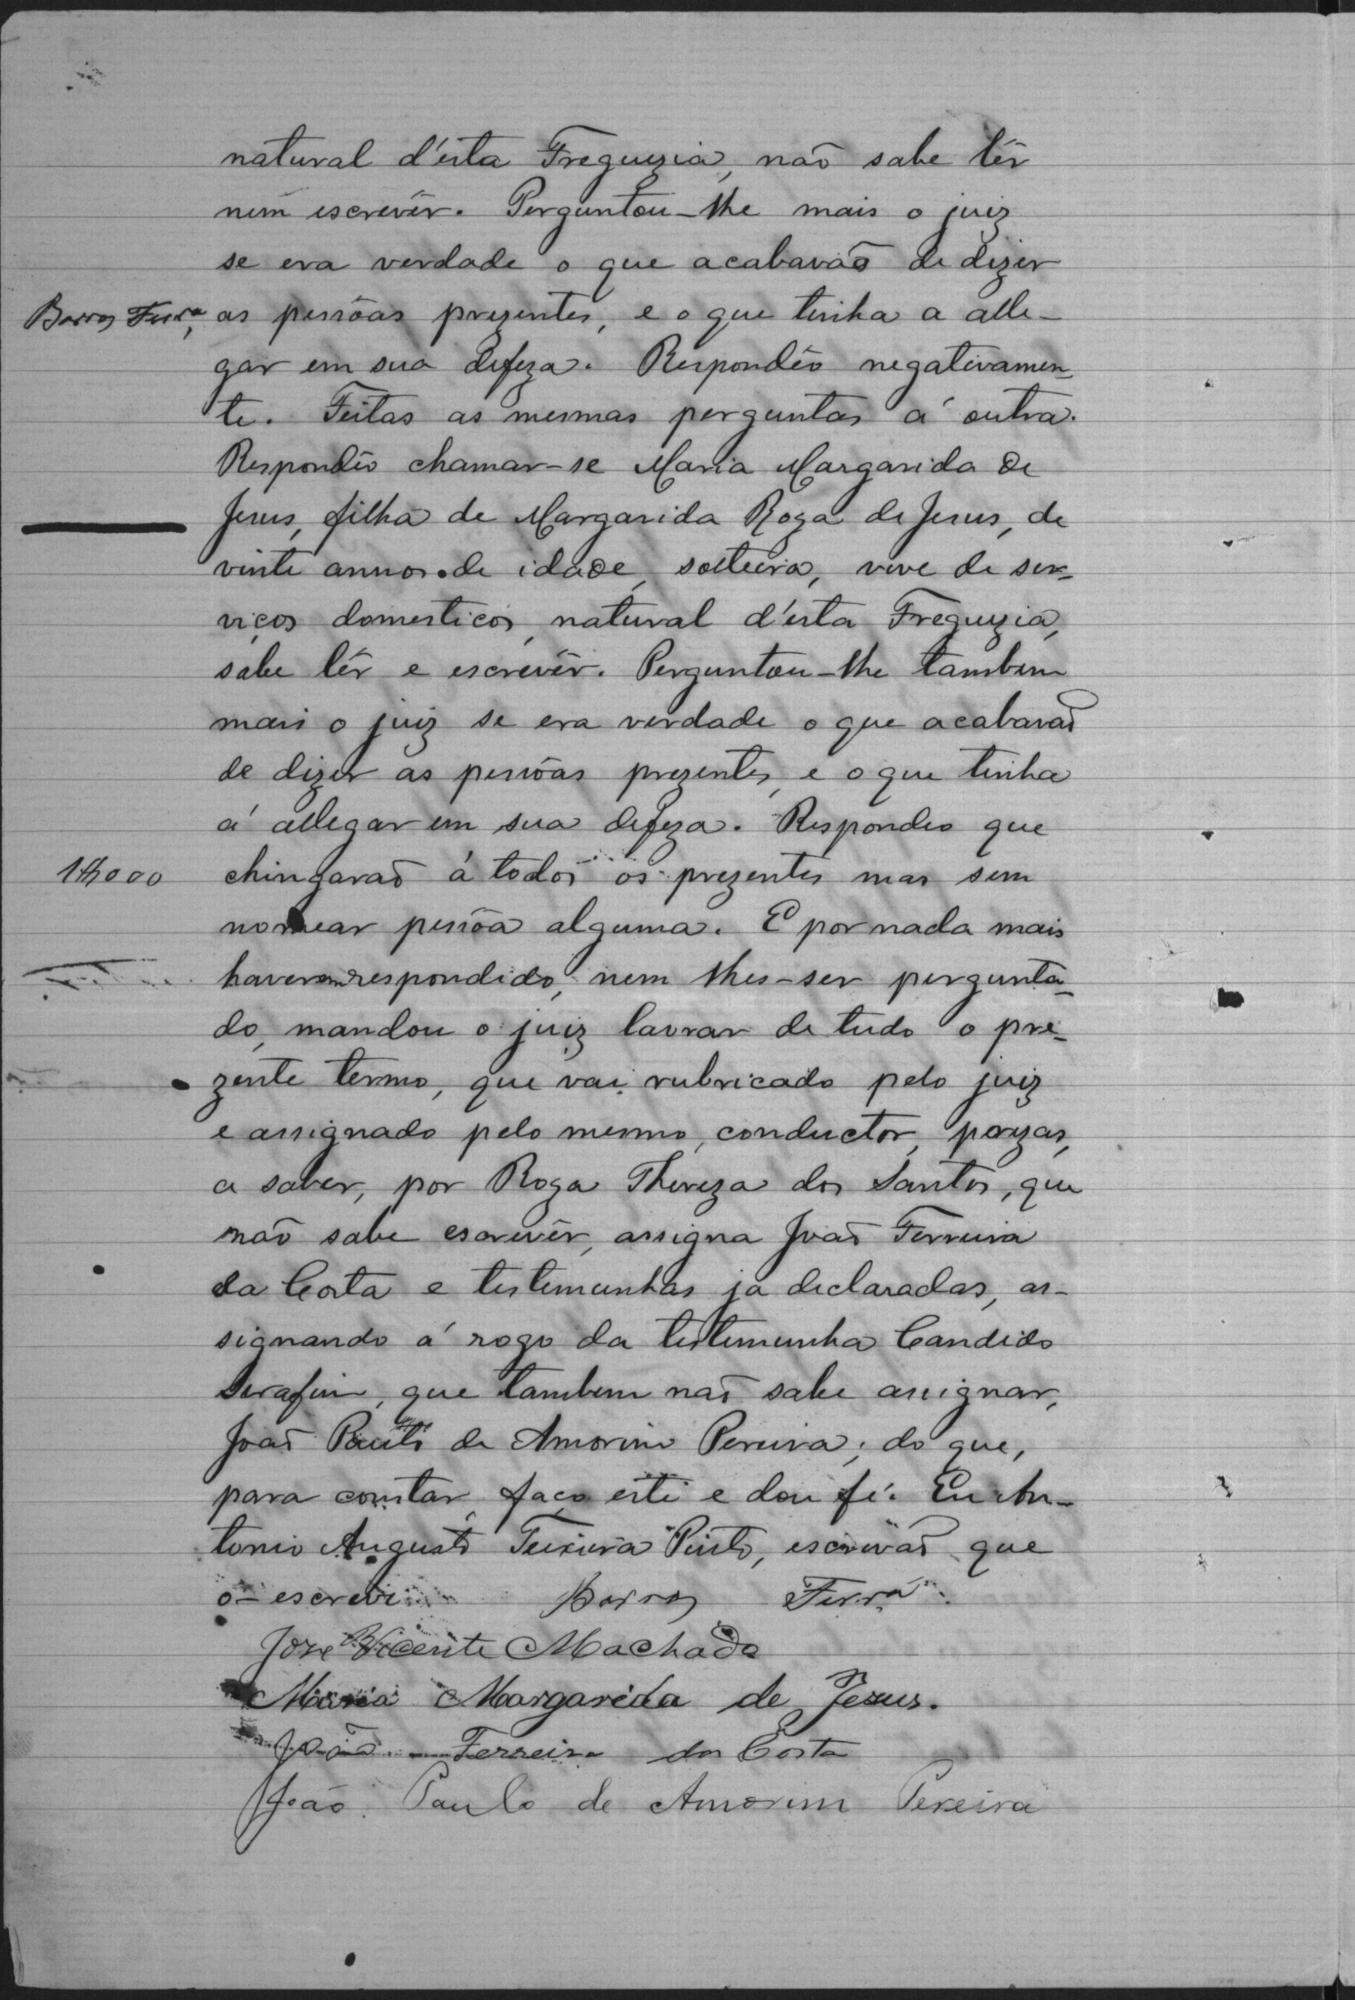 natural d'ésta Freguzia, naõ sabe lêr
nem escrevêr. Perguntou-lhe mais o juiz
se era verdade o que acabavaõ de dizer
Barros Ferrª, as pessôas prezentes, e o que tinha a alle-
gar em sua defeza. Respondêo negativamen-
te. Feitas as mesmas perguntas á outra.
Respondêo chamar-se Maria Margarida de
Jesus, filha de Margarida Roza de Jesus, de
vinte annos de idade, solteira, vive de ser-
viços domesticos, natural d'ésta Freguzia,
sabe lêr e escrevêr. Perguntou-lhe tambem
mais o juiz se era verdade o que acabavaõ
de dizer as pessôas prezentes, e o que tinha
á allegar em sua defeza. Respondeo que
1$000 chingaraõ á todos os prezentes mas sem
nomear pessôa alguma. E por nada mais
haverem respondido, nem lhes-ser pergunta-
do, mandou o juiz lavrar de tudo o pre-
zente termo, que vai rubricado pelo juiz
e assignado pelo mesmo, conductor, prezas,
a saber, por Roza Thereza dos Santos, que
naõ sabe escrevêr, assigna Joaõ Ferreira
da Costa e testemunhas ja declaradas, as-
signando á rogo da testemunha Candido
Serafim, que tambem naõ sabe assignar,
Joaõ Paulo de Amorim Pereira; do que,
para constar, faço este e dou fé. Eu An-
tonio Augusto Teixeira Pinto, escrivaõ que
o-escrevi. Barros Ferrª
Joze Vicente Machado
Maria Margarida de Jezus.
João Ferreira da Costa
João Paulo de Amorim Pereira